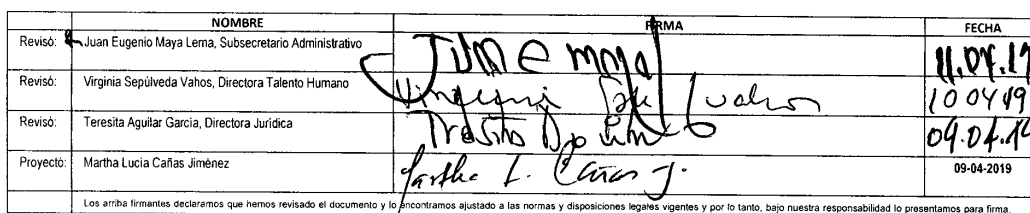 NOMBRE FIRMA FECHA
Revisó: Juan Eugenio Maya Lema, Subsecretario Administrativo Juan e maya 11.04.19
Revisó: Virginia Sepúlveda Vahos, Directora Talento Humano Virginia 100419
Revisó: Teresita Aguilar García, Directora Jurídica 09.04.19
Proyectó: Martha Lucía Cañas Jiménez Martha L. Cañas J. 09-04-2019
Los arriba firmantes declaramos que hemos revisado el documento y lo encontramos ajustado a las normas y disposiciones legales vigentes y por lo tanto, bajo nuestra responsabilidad lo presentamos para firma.